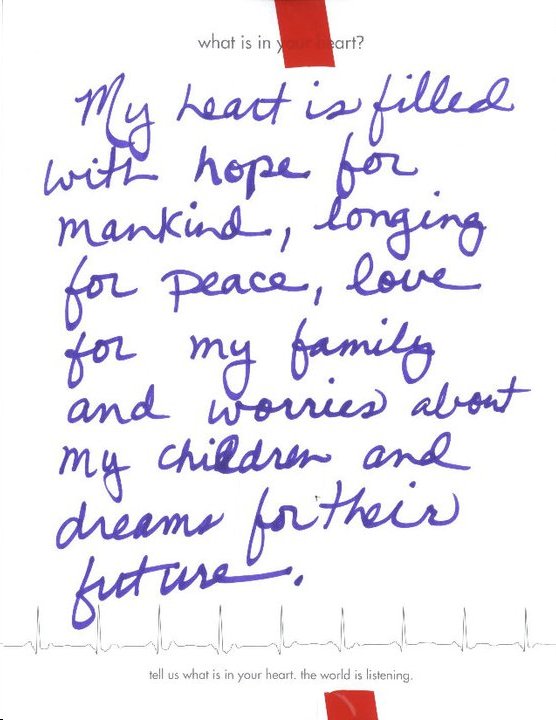 what is in your heart?
My heart is filled
with hope for
mankind, longing
for peace, love
for my family
and worries about
my children and
dreams for their
future.
tell us what is in your heart. the world is listening.